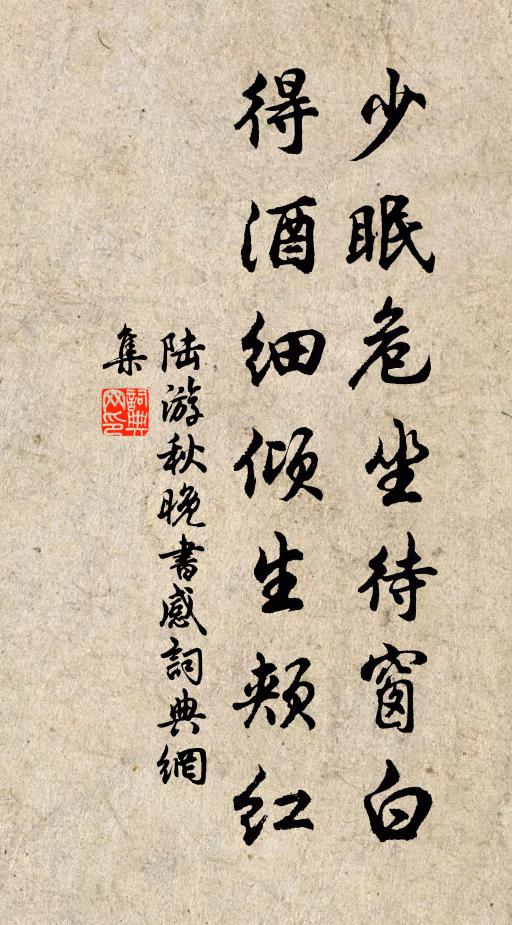 少眠危坐待窗白
得酒细倾生颊红
陆游秋晚書感詞典網
集
詞典網印